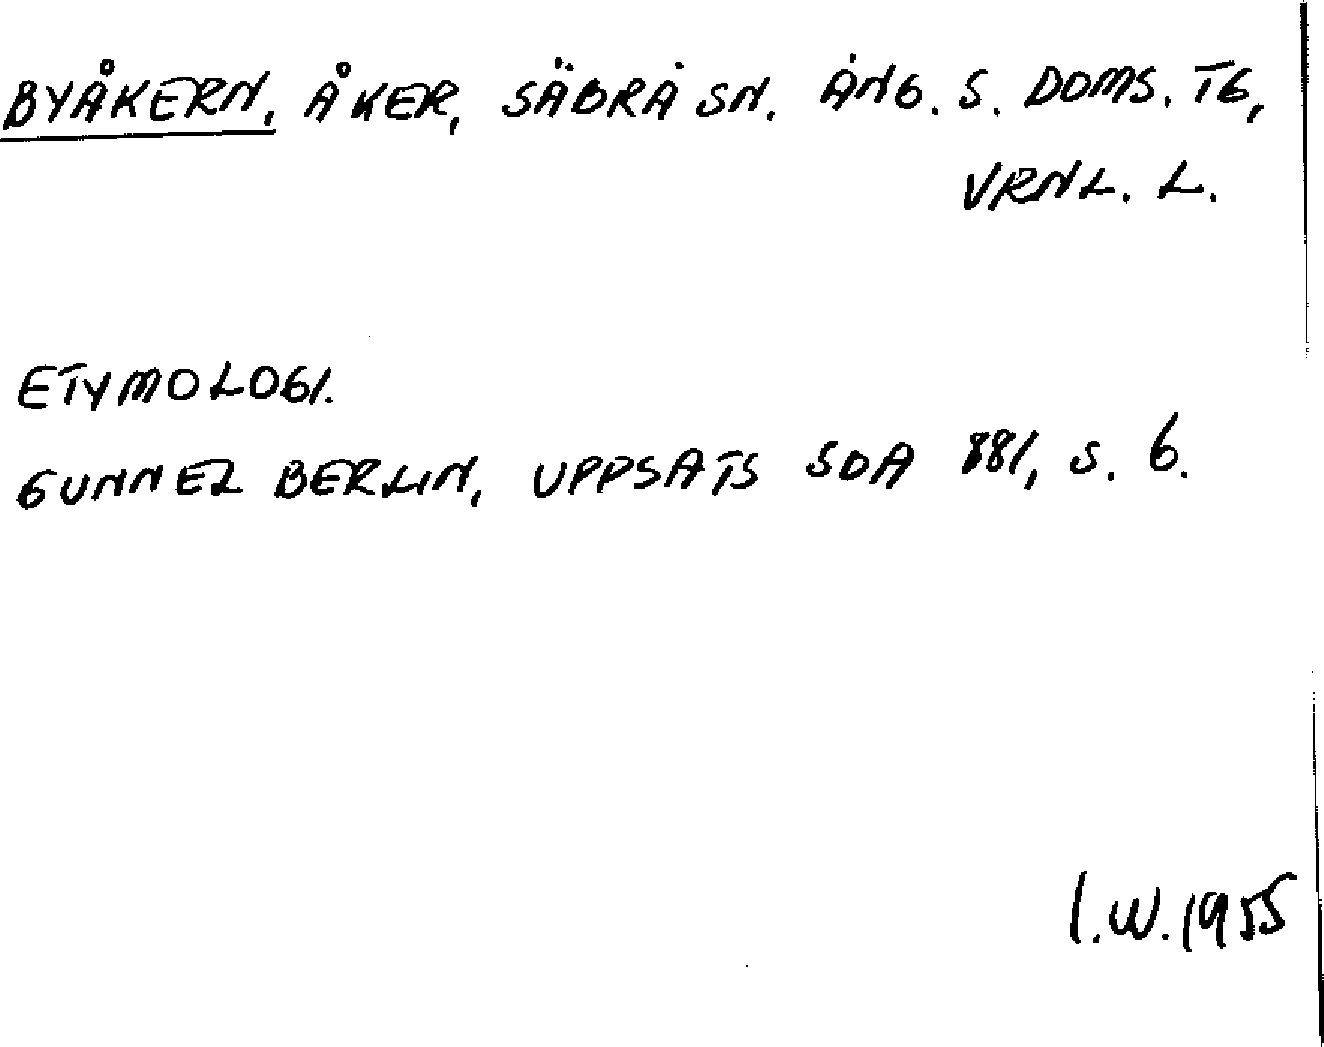 BYÅKERN, ÅKER, SÄBRÅ SN. ÅNG. S. DOMS. TG,
VRNL. L.
ETYMOLOGI.
GUNNEL BERLIN, UPPSATS SOA 881, S. 6.
I.W. 1955